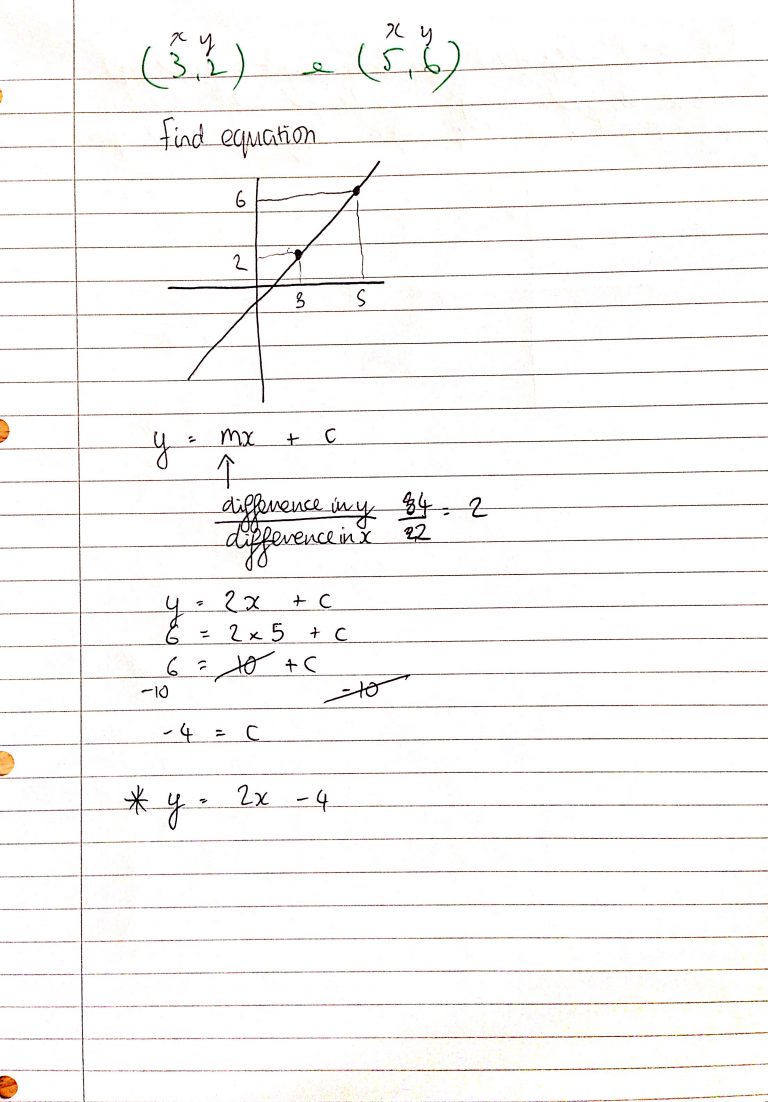 x y x y
(3,2) e (5,6)
Find equation
6
2
3 5
y = mx + c
↑
difference in y 4 = 2
difference in x 2
y = 2x + c
6 = 2 x 5 + c
6 = 10 + c
-10 -10
-4 = c
* y = 2x - 4